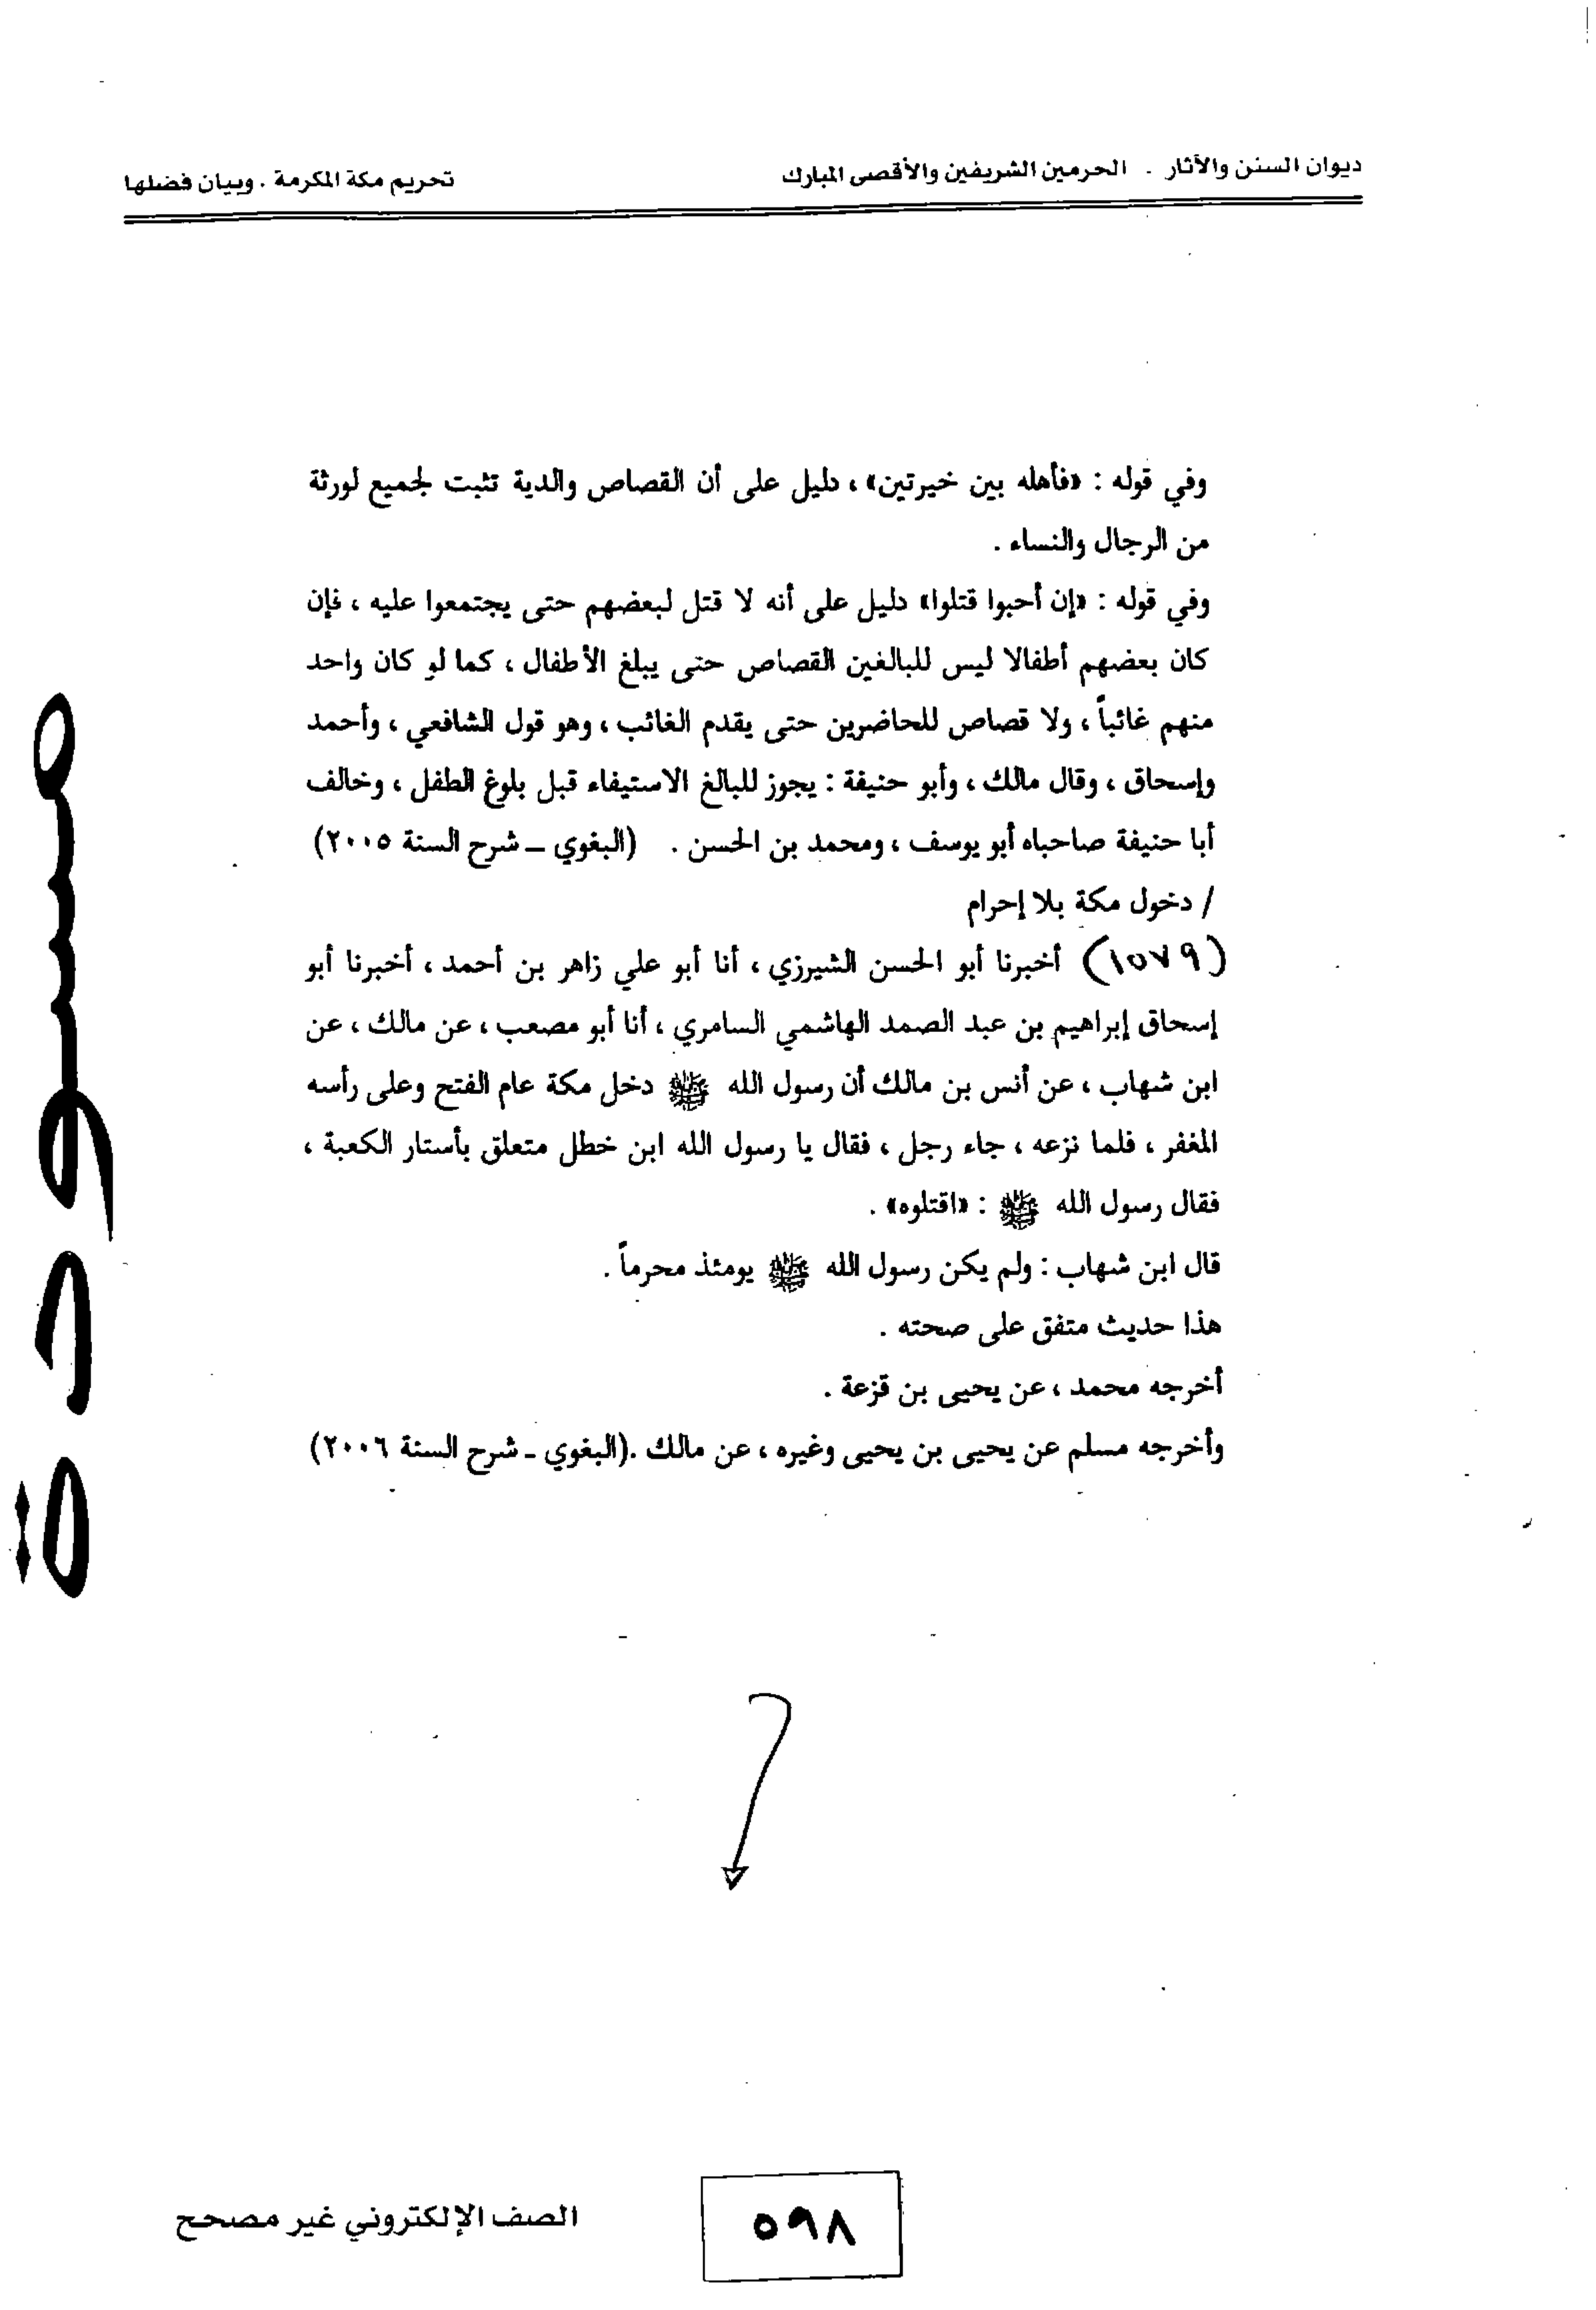 ديوان السنن والآثار . الحرمين الشريفين والأقصى المبارك
تحريم مكة المكرمة . وبيان فضلها
وفي قوله : «فأهله بين خيرتين» ، دليل على أن القصاص والدية تثبت لجميع لورثة
من الرجال والنساء .
وفي قوله : «إن أحبوا قتلوا» دليل على أنه لا قتل لبعضهم حتى يجتمعوا عليه ، فإن
كان بعضهم أطفالا ليس للبالغين القصاص حتى يبلغ الأطفال ، كما لو كان واحد
منهم غائباً ، ولا قصاص للحاضرين حتى يقدم الغائب ، وهو قول الشافعي ، وأحمد
وإسحاق ، وقال مالك ، وأبو حنيفة : يجوز للبالغ الاستيفاء قبل بلوغ الطفل ، وخالف
أبا حنيفة صاحباه أبو يوسف ، ومحمد بن الحسن . (البغوي ــ شرح السنة ٢٠٠٥)
/ دخول مكة بلا إحرام
(١٥٧٩) أخبرنا أبو الحسن الشيرزي ، أنا أبو علي زاهر بن أحمد ، أخبرنا أبو
إسحاق إبراهيم بن عبد الصمد الهاشمي السامري ، أنا أبو مصعب ، عن مالك ، عن
ابن شهاب ، عن أنس بن مالك أن رسول الله ﷺ دخل مكة عام الفتح وعلى رأسه
المغفر ، فلما نزعه ، جاء رجل ، فقال يا رسول الله ابن خطل متعلق بأستار الكعبة ،
فقال رسول الله ﷺ : «اقتلوه» .
قال ابن شهاب : ولم يكن رسول الله ﷺ يومئذ محرماً .
هذا حديث متفق على صحته .
أخرجه محمد ، عن يحيى بن قزعة .
وأخرجه مسلم عن يحيى بن يحيى وغيره ، عن مالك .(البغوي ـ شرح السنة ٢٠٠٦)
مسودة
٥٩٨
الصف الإلكتروني غير مصحح